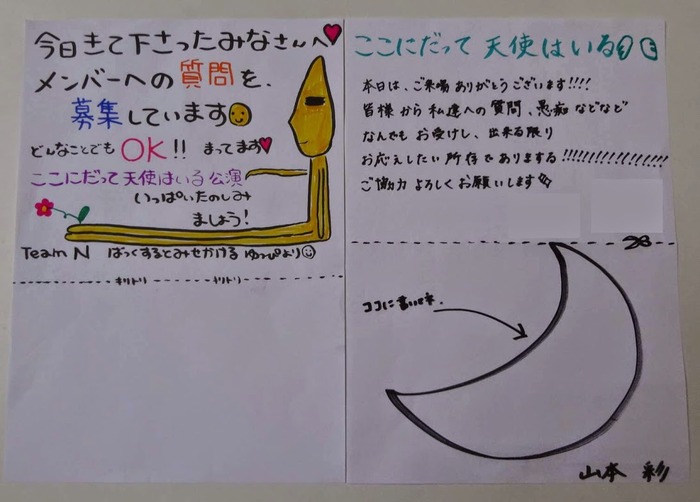 今日きて下さったみなさんへ
メンバーへの質問を、
募集しています
どんなことでも OK!! まってます
ここにだって天使はいる公演
いっぱいたのしみ
ましょう!
Team N ばっくするとみせかける ゆっぴより
キリトリ キリトリ
ここにだって 天使はいる
本日は、ご来場ありがとうございます!!!!
皆様から私達への質問、愚痴などなど
なんでもお受けし、出来る限り
お応えしたい所存でありまする!!!!!!!!!!!!!!!!!
ご協力よろしくお願いします
ココに書いてネ.
山本 彩